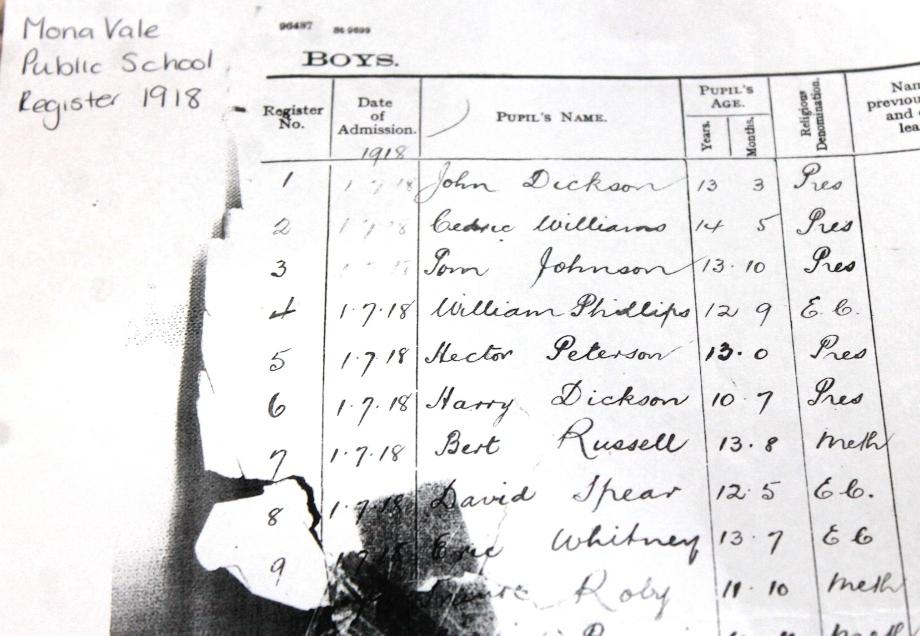 Mona Vale
Public School
Register 1918
96487 St 9699
BOYS.
Register No. Date of Admission. PUPIL'S NAME. PUPIL'S AGE. Years. Months. Religious Denomination.
1918
1 1.7.18 John Dickson 13 3 Pres
2 1.7.18 Cedric Williams 14 5 Pres
3 Tom Johnson 13.10 Pres
4 1.7.18 William Phillips 12 9 E.C.
5 1.7.18 Hector Peterson 13.0 Pres
6 1.7.18 Harry Dickson 10.7 Pres
7 1.7.18 Bert Russell 13.8 Meth
8 1.7.18 David Spear 12.5 E.C.
9 1.7.18 Eric Whitney 13.7 E C
Roby 11.10 Meth